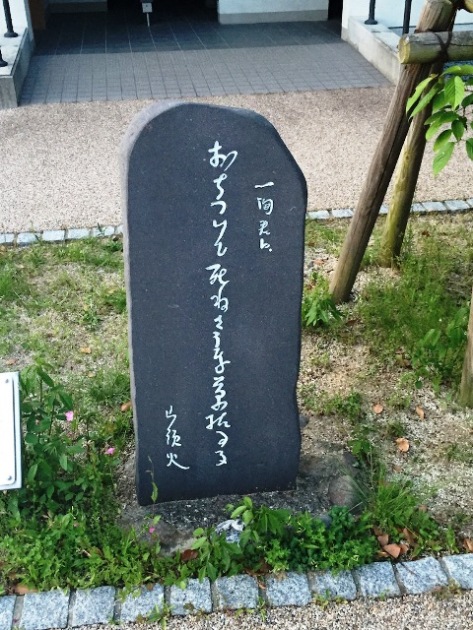 一洵君に
おちついて死ねさうな草枯るる
山頭火